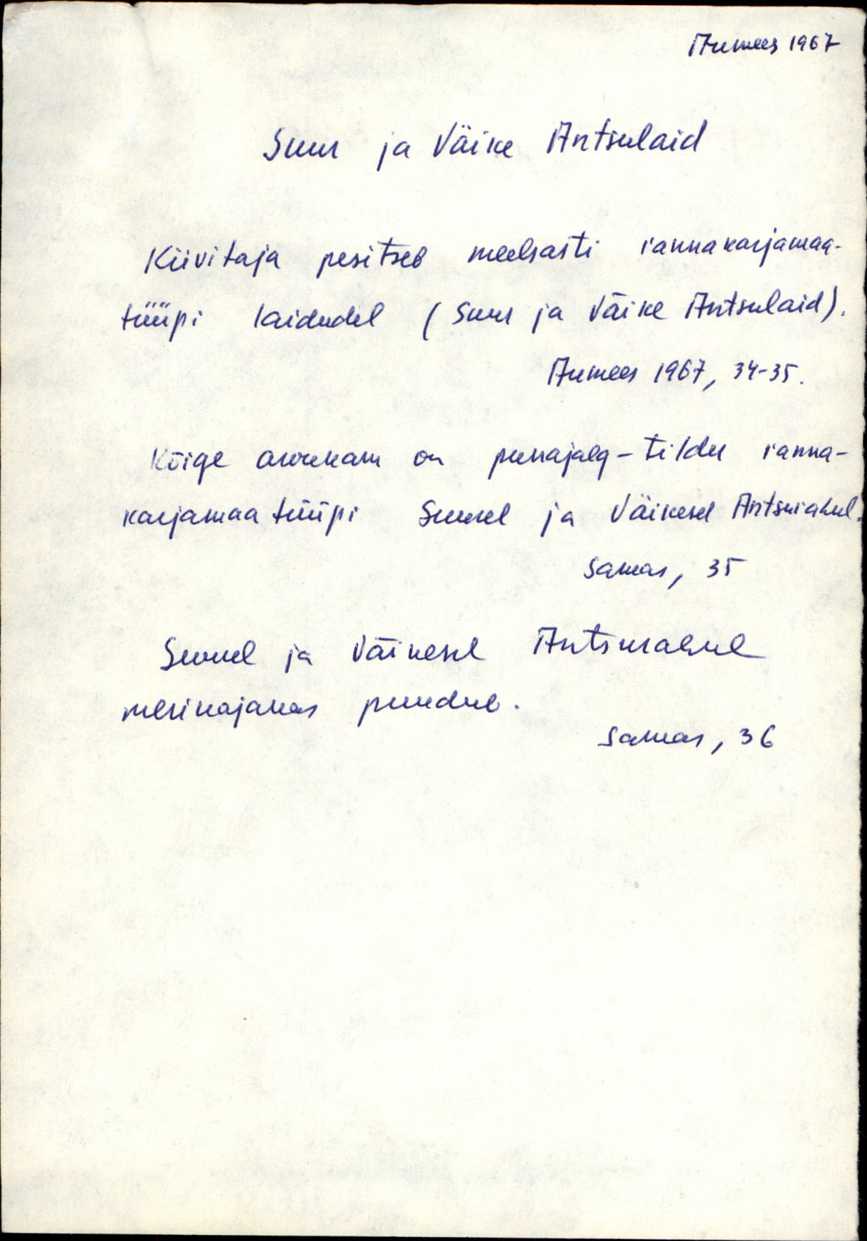 Aumees 1967
Suur ja Väike Antsulaid
Kiivitaja pesitseb meelsasti rannakarjamaa-
tüüpi laidudel (Suur ja Väike Antsulaid).
Aumees 1967, 34-35.
Kõige arvukam on punajalg-tilder ranna-
karjamaa tüüpi Suurel ja Väikesel Antsurahul.
Samas, 35
Suurel ja Väikesel Antsurahul
merikajakas puudub.
Samas, 36